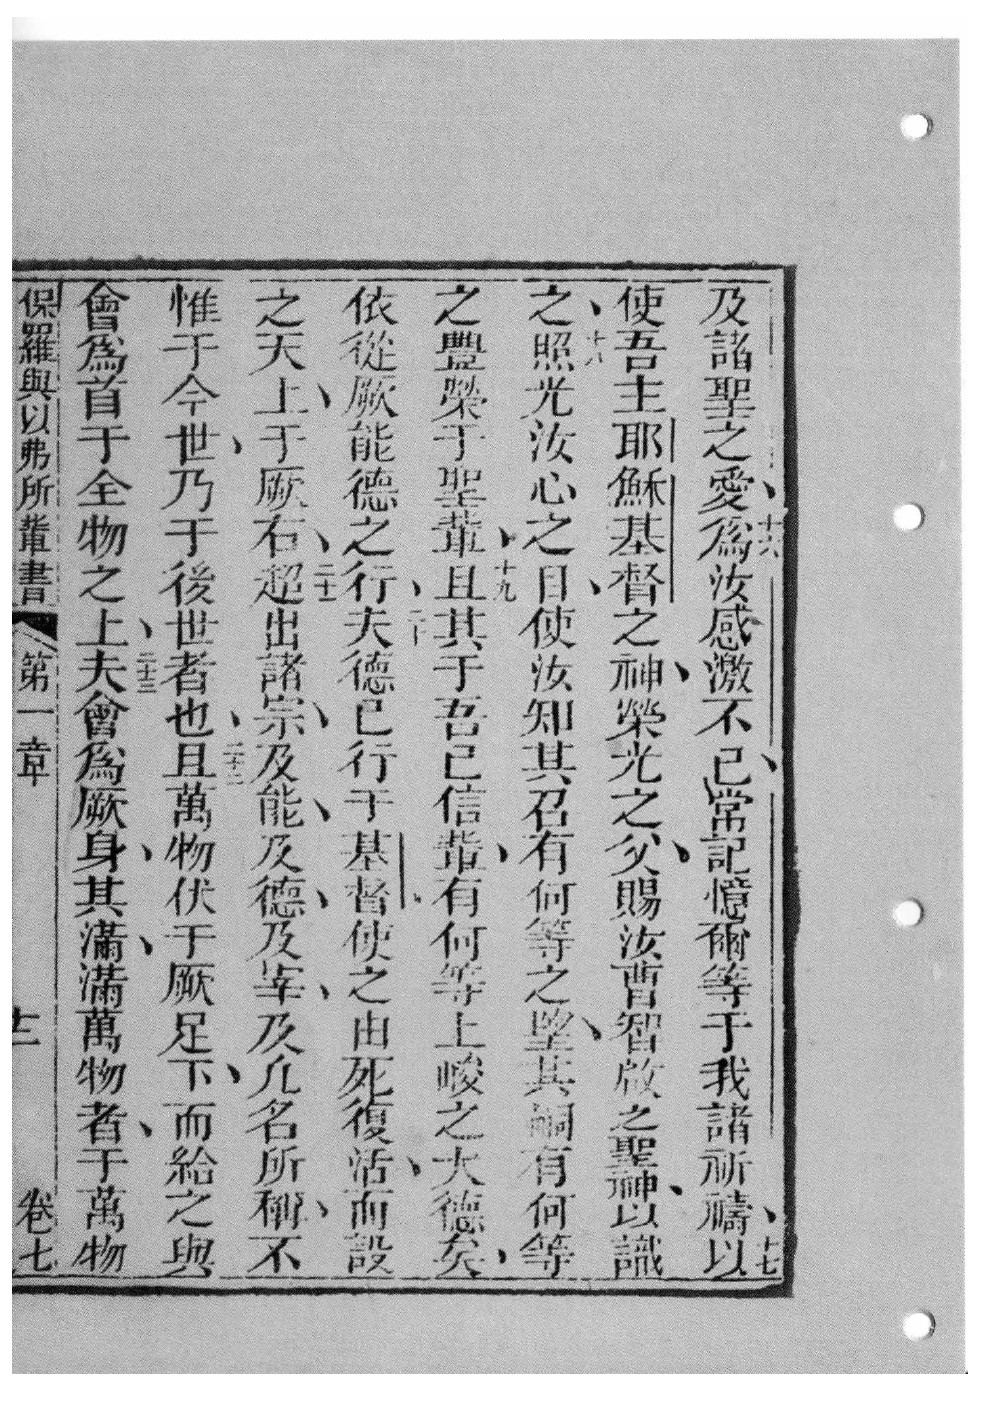 及諸聖之愛、十六為汝感激不已、常記憶爾等于我諸祈禱、十七以
使吾主耶穌基督之神、榮光之父、賜汝曹智啟之聖神、以識
之、十八照光汝心之目、使汝知其召有何等之望、其嗣有何等
之豐榮于聖輩、十九且其于吾已信輩、有何等上峻之大德矣、
依從厥能德之行、二十夫德已行于基督、使之由死復活、而設
之天上、于厥右、二十一超出諸宗、及能、及德、及宰、及凢名所稱、不
惟于今世、乃于後世者也、二十二且萬物伏于厥足下、而給之與
會為首于全物之上、二十三夫會為厥身、其滿、滿萬物者、于萬物
保羅與以弗所輩書 第一章 十二 卷七